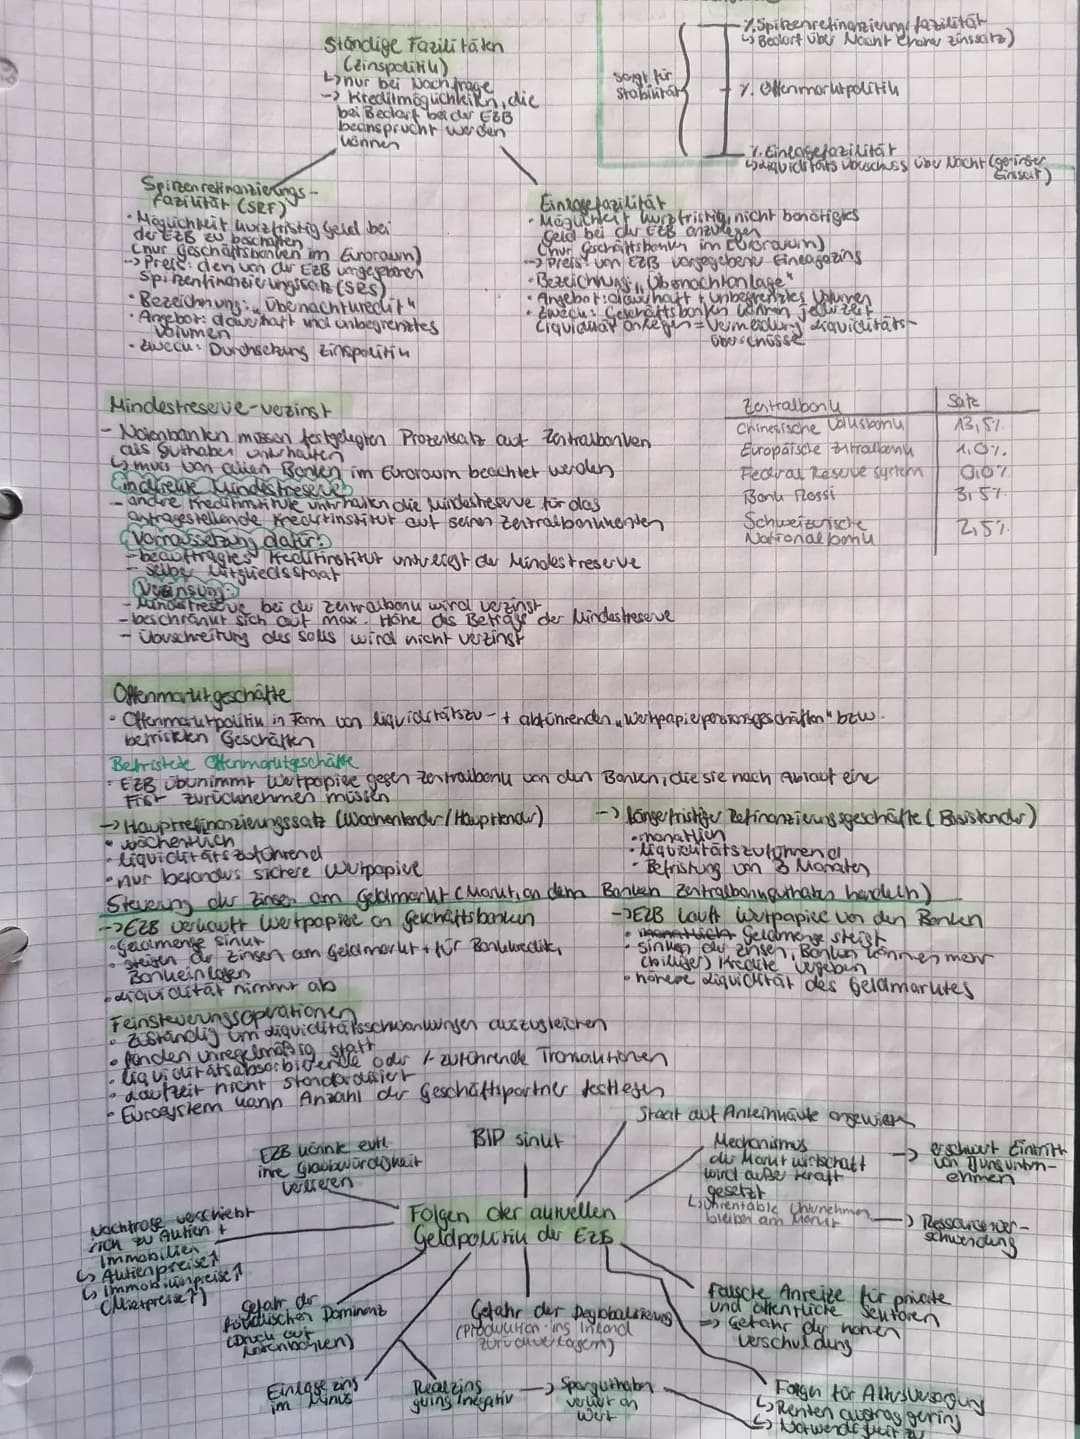 Ständige Fazilitäten
(Zinspolitik)
↳ nur bei Nachfrage
-> Kreditmöglichkeiten, die
bei Bedarf bei der EZB
beansprucht werden
können
sorgt für
stabilität
% Spitzenrefinanzierungsfazilität
↳ Bedarf über Nacht (hoher Zinssatz)
% Offenmarktpolitik
% Einlagefazilität
↳ Liquiditätsüberschuss über Nacht (geringer
Spitzenrefinanzierungs-
fazilität (SRF)
• Möglichkeit kurzfristig Geld bei
der EZB zu beschaffen
(nur Geschäftsbanken im Euroraum)
-> Preis: den von der EZB
Spitzenfinanzierungssatz (SRS)
• Bezeichnung: „Übernachtkredit"
• Angebot: dauerhaft und unbegrenztes
Volumen
• Zweck: Durchsetzung Zinspolitik
Einlagefazilität
• Möglichkeit kurzfristig, nicht benötigtes
Geld bei der EZB anzulegen
(nur Geschäftsbanken im Euroraum)
-> Preis: von EZB vorgegebener
• Bezeichnung: „Übernachtanlage"
• Angebot: dauerhaft + unbegrenztes Volumen
• Zweck: Geschäftsbanken können jederzeit
Liquidität anlegen = Vermeidung Liquiditäts-
überschüsse
Mindestreserve-verzinst
- Notenbanken müssen festgelegten Prozentsatz auf Zentralbanken
als Guthaben unterhalten
↳ muss von allen Banken im Euroraum beachtet werden
indirekte Mindestreserve:
- andre Kreditinstitute unterhalten die Mindestreserve für das
antragestellende Kreditinstitut auf seinen Zentralbankkonten
Vorraussetzung dafür:
- beauftragtes Kreditinstitut unterliegt der Mindestreserve
- selber Mitgliedsstaat
Verzinsung:
- Mindestreserve bei der Zentralbank wird verzinst
- beschränkt sich auf max. Höhe des Betrags der Mindestreserve
- Überschreitung des Solls wird nicht verzinst
Zentralbank Sätze
Chinesische Volksbank 13,5%
Europäische Zentralbank 1,0%
Federal Reserve System 0,0%
Bank Rossi 3,5%
Schweizerische
Nationalbank 2,5%
Offenmarktgeschäfte
• Offenmarktpolitik in Form von liquiditätszu- + abführenden „Wertpapierpensionsgeschäften" bzw.
befristeten Geschäften
Befristete Offenmarktgeschäfte
• EZB übernimmt Wertpapiere gegen Zentralbank von den Banken, die sie nach Ablauf eine
Frist zurücknehmen müssen
-> Hauptrefinanzierungssatz (Wochentender/Haupttender)
• wöchentlich
• liquiditätszuführend
• nur besonders sichere Wertpapiere
-> längerfristiger Refinanzierungsgeschäfte (Basistender)
• monatlich
• liquiditätszuführend
• Befristung von 3 Monaten
Steuerung der Zinsen am Geldmarkt (Markt, an dem Banken Zentralbankguthaben handeln)
-> EZB verkauft Wertpapiere an Geschäftsbanken
• Geldmenge sinkt
• steigen der Zinsen am Geldmarkt + für Bankkredite,
Bankeinlagen
• Liquidität nimmt ab
-> EZB kauft Wertpapiere von den Banken
• Geldmenge steigt
• sinken der Zinsen, Banken können mehr
(billiger) Kredite vergeben
• höhere Liquidität des Geldmarktes
Feinsteuerungsoperationen
• zuständig um Liquiditätsschwankungen auszugleichen
• finden unregelmäßig statt
• liquiditätsabsorbierende oder /-zuführende Transaktionen
• Laufzeit nicht standardisiert
• Eurosystem kann Anzahl der Geschäftspartner festlegen
Folgen der aktuellen
Geldpolitik der EZB
EZB könnte evtl.
ihre Glaubwürdigkeit
verlieren
BIP sinkt
Staat auf Anleihnkäufe angewiesen
Mechanismus
der Marktwirtschaft
wird außer Kraft
gesetzt
↳ unrentable Unternehmen
bleiben am Markt
-> erschwert Eintritt
von Jungunturn-
ehmen
-> Ressourcenver-
schwendung
Nachfrage verschiebt
sich zu Aktien +
Immobilien
↳ Aktienpreise↑
↳ Immobilienpreise↑
(Mietpreise↑)
Gefahr der
fiskalischen Dominanz
(Druck auf
Notenbanken)
Gefahr der Deglobalisierung
(Produktion ins Inland
zurückverlagern)
Falsche Anreize für private
und öffentliche Sektoren
=> Gefahr der hohen
Verschuldung
Einlagezins
im Minus
Realzins
gering/negativ
-> Sparguthaben
verliert an
Wert
Folgen für Altersversorgung
↳ Renten gering
↳ Notwendigkeit zu